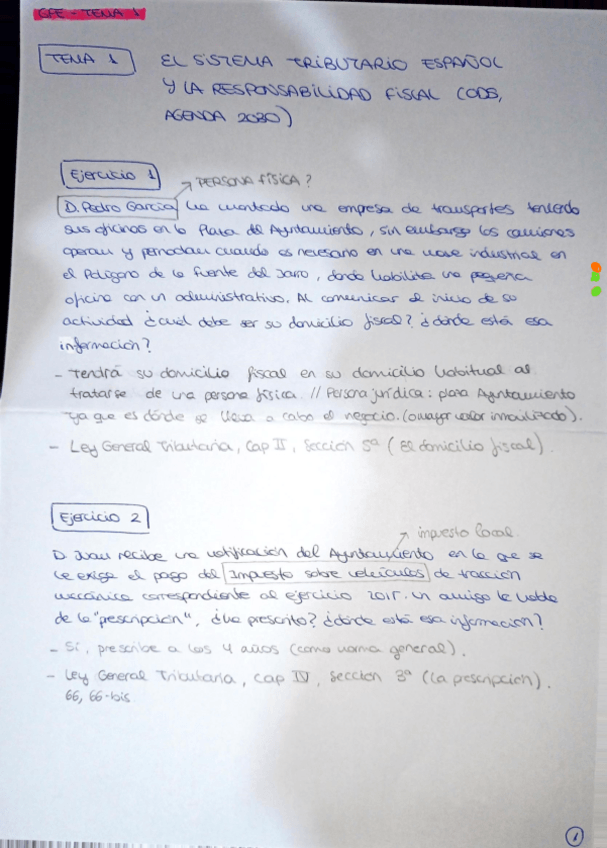 CFE - TEMA 1
TEMA 1 EL SISTEMA TRIBUTARIO ESPAÑOL
Y LA RESPONSABILIDAD FISCAL (ODS,
AGENDA 2030)
Ejercicio 1 → PERSONA FÍSICA?
D. Pedro García ha montado una empresa de transportes teniendo
sus oficinas en la Plaza del Ayuntamiento, sin embargo los camiones
operan y pernoctan cuando es necesario en una nave industrial en
el Polígono de la Fuente del Jarro, donde habilita una pequeña
oficina con un administrativo. Al comunicar el inicio de su
actividad ¿cuál debe ser su domicilio fiscal? ¿dónde está esa
información?
- Tendrá su domicilio fiscal en su domicilio habitual al
tratarse de una persona física. // Persona jurídica: plaza Ayuntamiento
ya que es dónde se lleva a cabo el negocio. (o mayor valor inmovilizado).
- Ley General Tributaria, Cap II, Sección 5ª (El domicilio fiscal).
Ejercicio 2
→ impuesto local
D. Juan recibe una notificación del Ayuntamiento en la que se
le exige el pago del Impuesto sobre vehículos de tracción
mecánica correspondiente al ejercicio 2015. Un amigo le habla
de la "prescripción", ¿ha prescrito? ¿dónde está esa información?
- Sí, prescribe a los 4 años (como norma general).
- Ley General Tributaria, Cap IV, Sección 3ª (La prescripción).
66, 66-bis
1